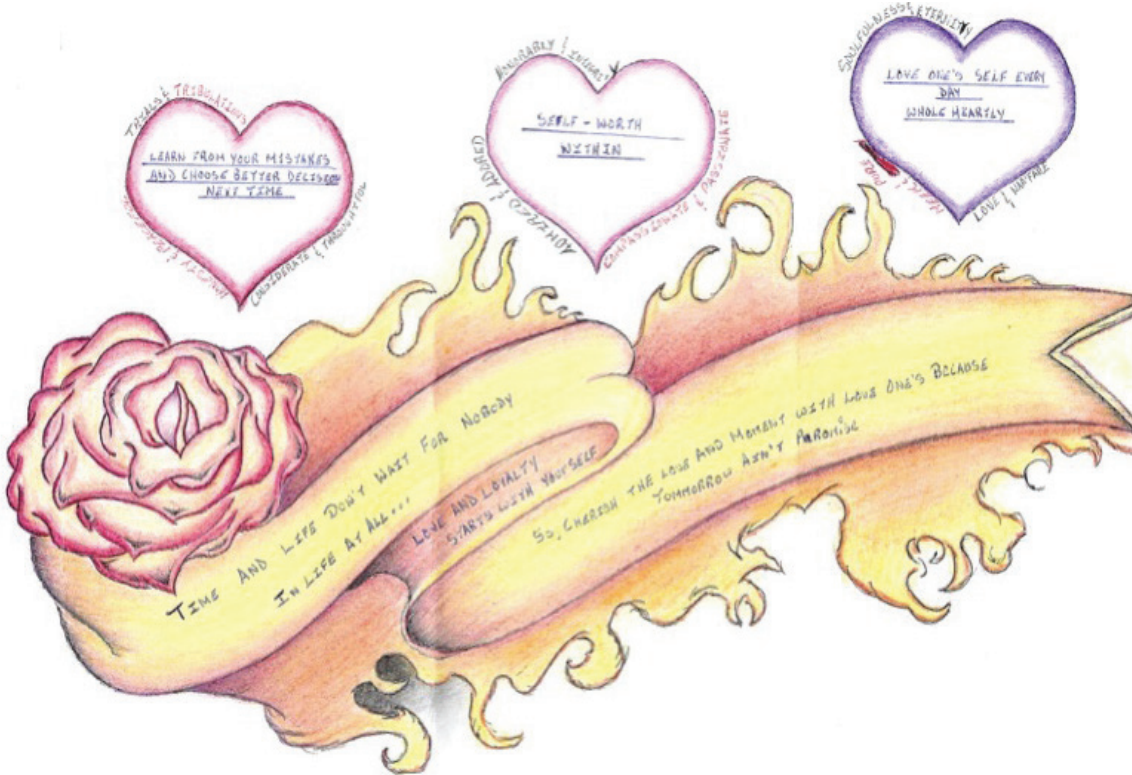 TRIALS & TRIBULATIONS
LEARN FROM YOUR MISTAKES
AND CHOOSE BETTER DECISION
NEXT TIME
CONSIDERATE & THROUGHTFUL
HONORABLY &
SEELF - WORTH
WITHIN
ADMIRED & ADORED
COMPASSIONATE & PASSIONATE
SOULFULNESS & ETERNITY
LOVE ONE'S SELF EVERY
DAY
WHOLE HEARTLY
& PURE
LOVE &
TIME AND LIFE DON'T WAIT FOR NOBODY
IN LIFE AT ALL...
LOVE AND LOYALTY
STARTS WITH YOURSELF
So, CHERISH THE LOVE AND MOMENT WITH LOVE ONE'S BECAUSE
TOMMORROW AIN'T PAROMISE